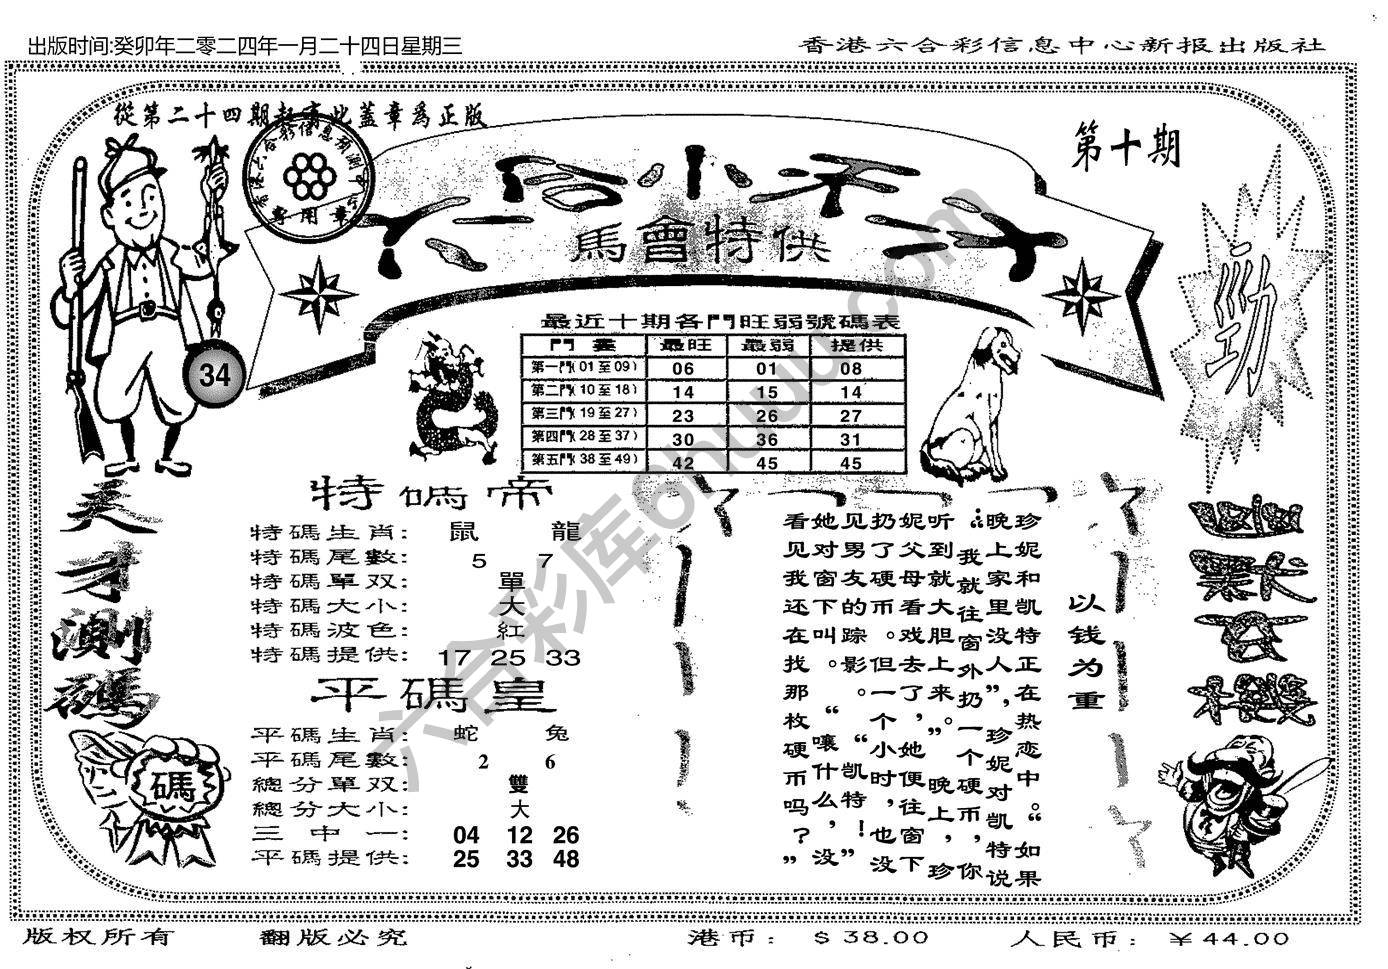 出版时间:癸卯年二零二四年一月二十四日星期三
香港六合彩信息中心新报出版社
從第二十四期起蓋此章爲正版
第十期
六合小天子
馬會特供
勁
34
最近十期各門旺弱號碼表
門數 最旺 最弱 提供
第一門(01至09) 06 01 08
第二門(10至18) 14 15 14
第三門(19至27) 23 26 27
第四門(28至37) 30 36 31
第五門(38至49) 42 45 45
天才測碼
特碼帝
特碼生肖: 鼠 龍
特碼尾數: 5 7
特碼單双: 單
特碼大小: 大
特碼波色: 紅
特碼提供: 17 25 33
平碼皇
平碼生肖: 蛇 兔
平碼尾數: 2 6
總分單双: 雙
總分大小: 大
三中一: 04 12 26
平碼提供: 25 33 48
碼
以钱为重
珍妮和凯特正在热恋中。“如果
晚上家里没人”,珍妮对凯特说
:“我就往窗外扔一个硬币,你
听到就大胆上来。”晚上,珍
妮父母看戏去了,她便往窗下
扔了硬币。但一个小时,也没
见男友的踪影。“凯特!”
她对窗下叫。“嚷什么,没
看见我还在找那枚硬币吗?”
版权所有
翻版必究
港币: $38.00
人民币: ¥44.00
六合彩库6huuu.com